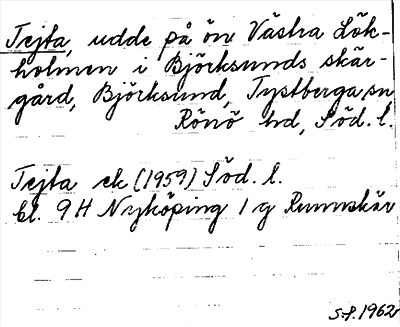 Tejta, udde på ön Västra Lök-
holmen i Björksunds skär-
gård, Björksund, Tystberga sn
Rönö hd, Söd. l.
Tejta ek (1959) Söd. l.
bl. 9H Nyköping 1 g Runnskär
S.F. 1962